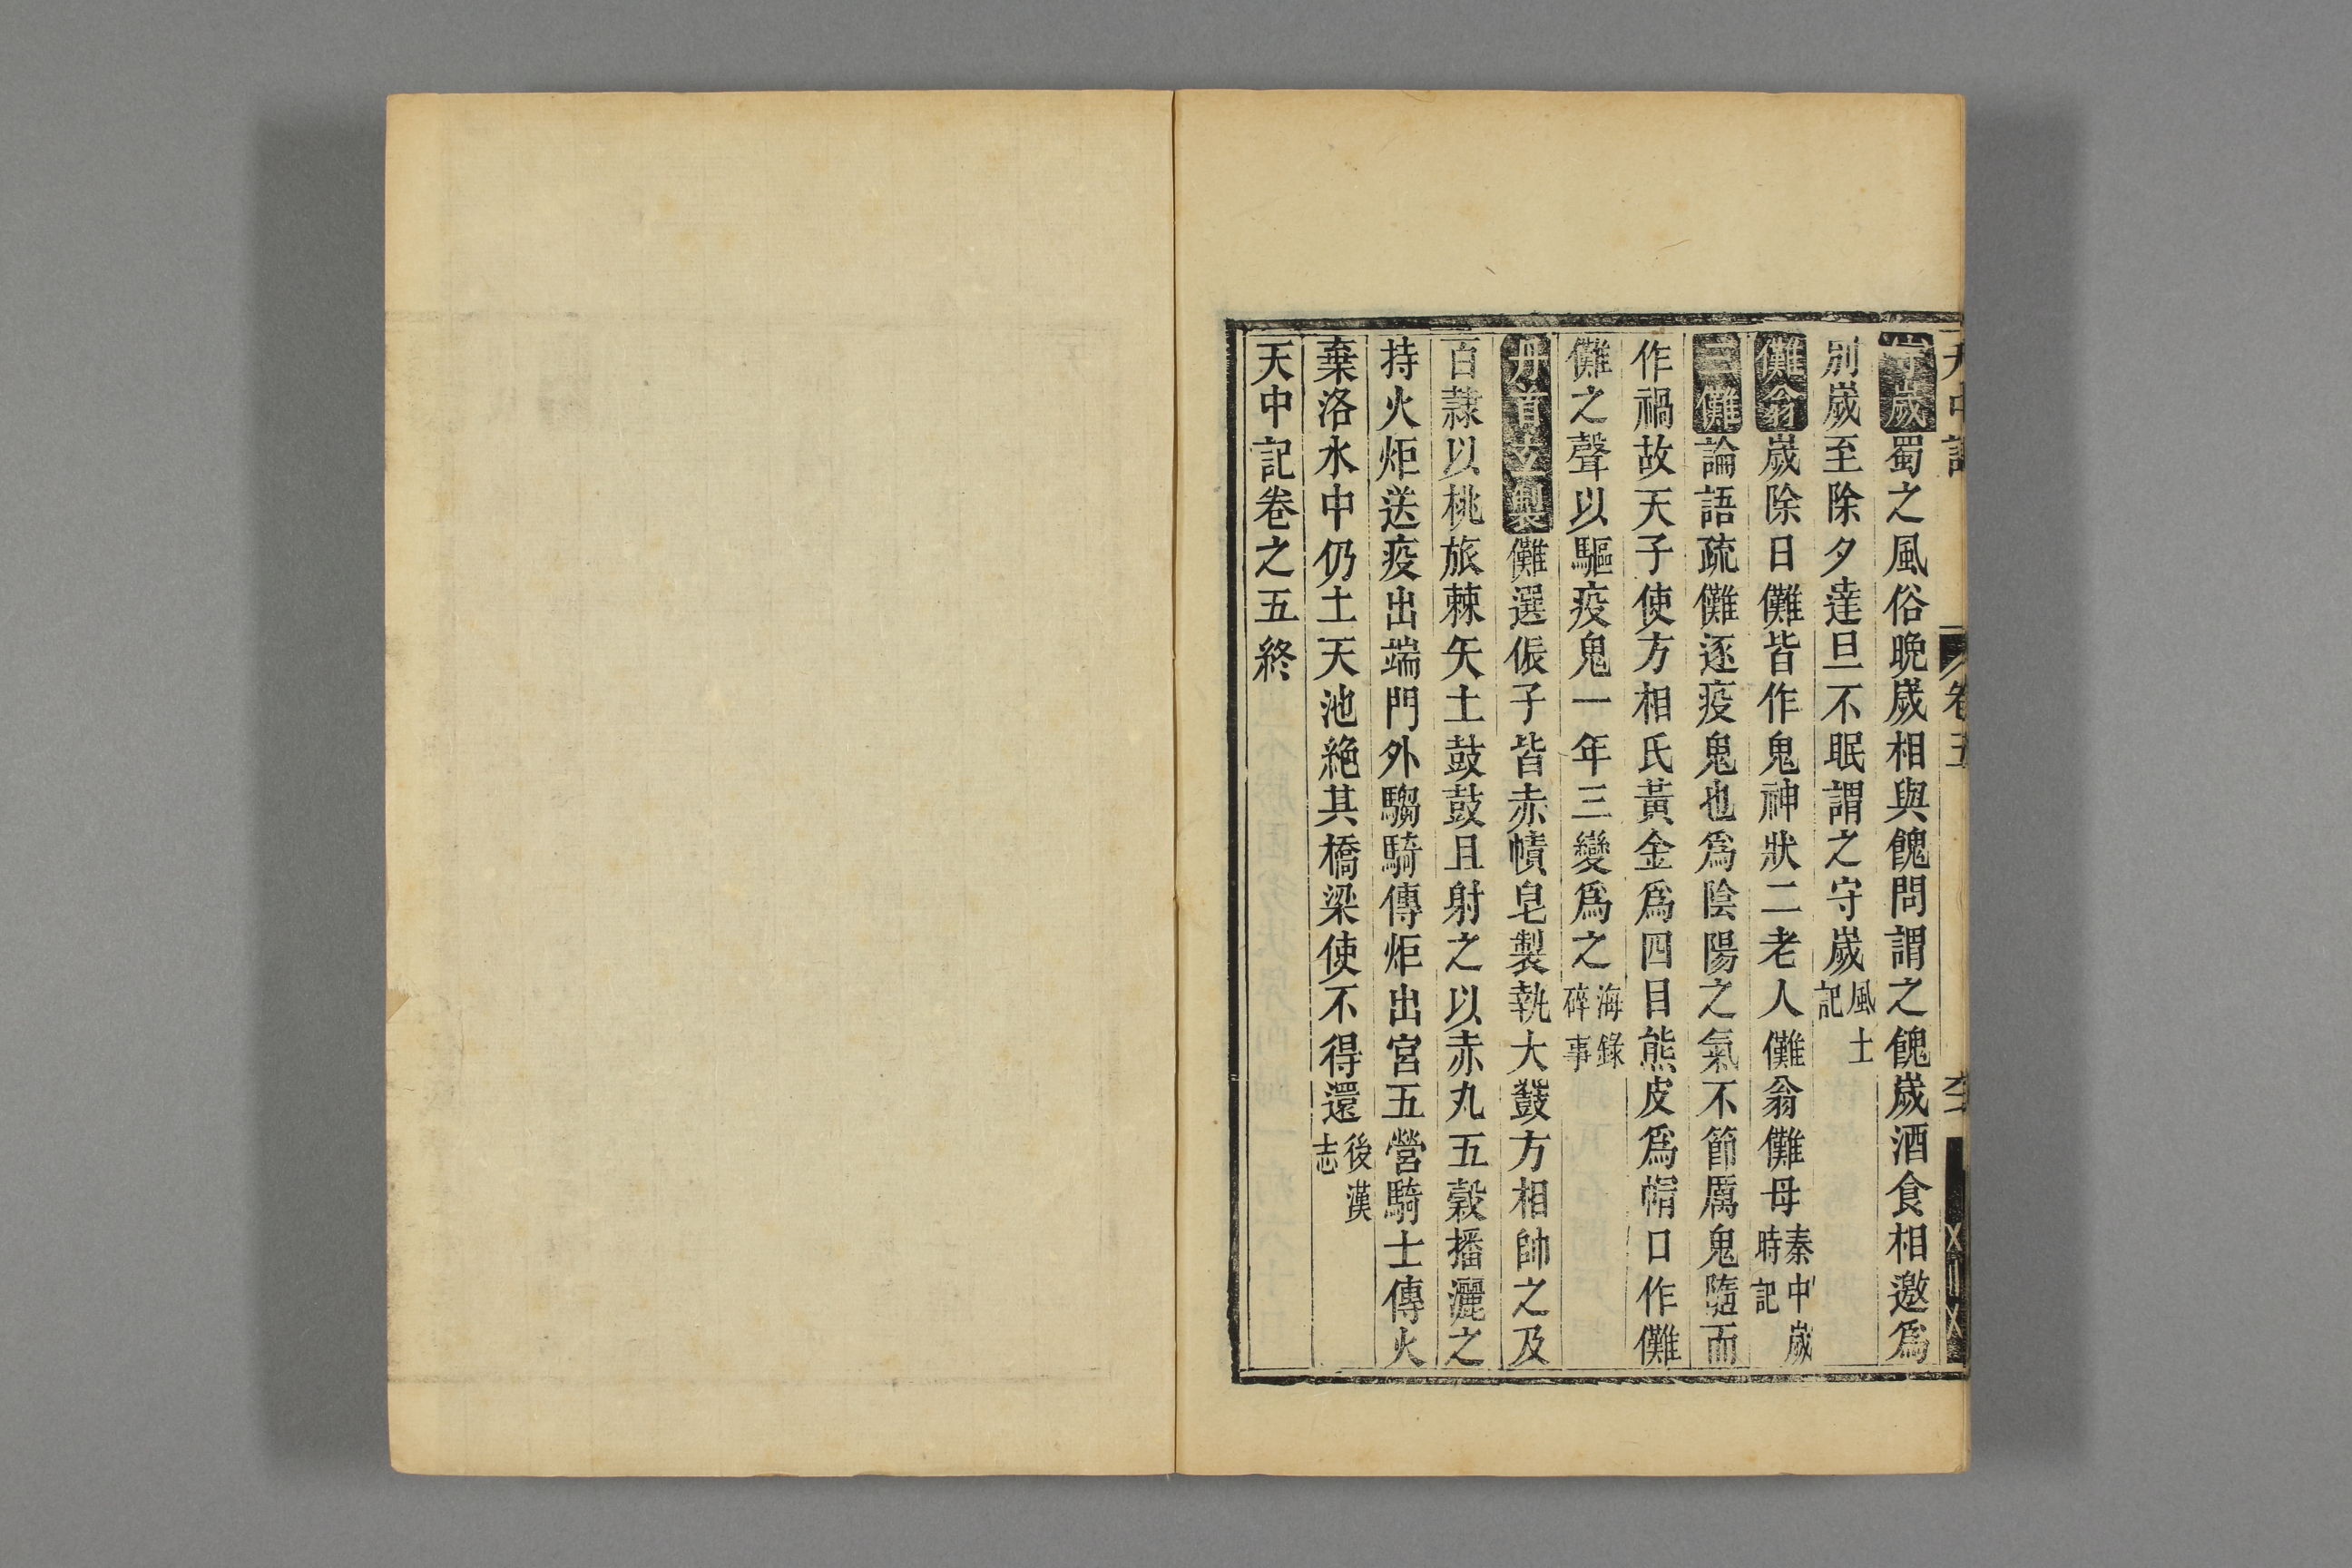 天中記 卷五
守歲蜀之風俗晚歲相與餽問謂之餽歲酒食相邀爲
別歲至除夕達旦不眠謂之守歲風土記
儺翁歲除日儺皆作鬼神狀二老人儺翁儺母秦中歲時記
三儺論語疏儺逐疫鬼也爲陰陽之氣不節厲鬼隨而
作禍故天子使方相氏黃金爲四目熊皮爲帽口作儺
儺之聲以驅疫鬼一年三變爲之海錄碎事
丹首玄製儺選侲子皆赤幘皂製執大鼗方相帥之及
百隷以桃旅棘矢土鼓鼓且射之以赤丸五穀播灑之
持火炬送疫出端門外騶騎傳炬出宮五營騎士傳火
棄洛水中仍土天池絶其橋梁使不得還後漢志
天中記卷之五終